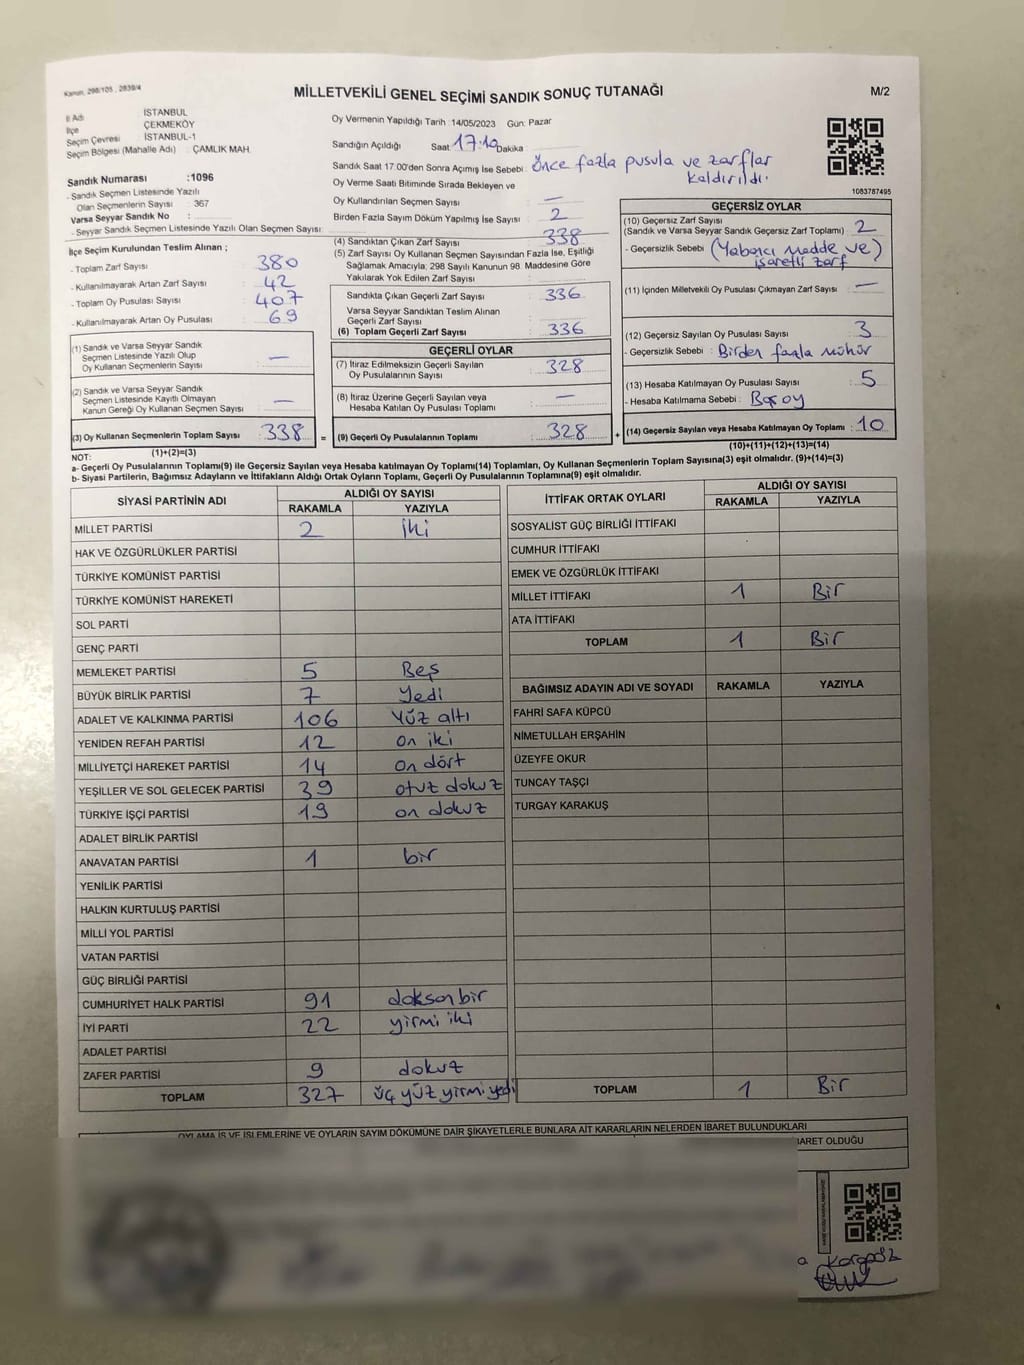 Kanun, 298/105 , 2839/4
MİLLETVEKİLİ GENEL SEÇİMİ SANDIK SONUÇ TUTANAĞI
M/2
İl Adı İSTANBUL
İlçe ÇEKMEKÖY
Seçim Çevresi İSTANBUL-1
Seçim Bölgesi (Mahalle Adı) : ÇAMLIK MAH.
Sandık Numarası :1096
- Sandık Seçmen Listesinde Yazılı
Olan Seçmenlerin Sayısı : 367
Varsa Seyyar Sandık No :
- Seyyar Sandık Seçmen Listesinde Yazılı Olan Seçmen Sayısı :
Oy Vermenin Yapıldığı Tarih : 14/05/2023 Gün: Pazar
Sandığın Açıldığı Saat 17:10 Dakika
Sandık Saat 17:00'den Sonra Açımış İse Sebebi : Önce fazla pusula ve zarflar
kaldırıldı.
Oy Verme Saati Bitiminde Sırada Bekleyen ve
Oy Kullandırılan Seçmen Sayısı : —
Birden Fazla Sayım Döküm Yapılmış İse Sayısı : 2
1083787495
İlçe Seçim Kurulundan Teslim Alınan ;
- Toplam Zarf Sayısı : 380
- Kullanılmayarak Artan Zarf Sayısı : 42
- Toplam Oy Pusulası Sayısı : 407
- Kullanılmayarak Artan Oy Pusulası : 69
(1) Sandık ve Varsa Seyyar Sandık
Seçmen Listesinde Yazılı Olup
Oy Kullanan Seçmenlerin Sayısı : —
(2) Sandık ve Varsa Seyyar Sandık
Seçmen Listesinde Kayıtlı Olmayan
Kanun Gereği Oy Kullanan Seçmen Sayısı : —
(3) Oy Kullanan Seçmenlerin Toplam Sayısı : 338 =
(1)+(2)=(3)
(4) Sandıktan Çıkan Zarf Sayısı : 338
(5) Zarf Sayısı Oy Kullanan Seçmen Sayısından Fazla İse, Eşitliği
Sağlamak Amacıyla; 298 Sayılı Kanunun 98. Maddesine Göre
Yakılarak Yok Edilen Zarf Sayısı :
Sandıkta Çıkan Geçerli Zarf Sayısı : 336
Varsa Seyyar Sandıktan Teslim Alınan
Geçerli Zarf Sayısı :
(6) Toplam Geçerli Zarf Sayısı : 336
GEÇERLİ OYLAR
(7) İtiraz Edilmeksizin Geçerli Sayılan
Oy Pusulalarının Sayısı : 328
(8) İtiraz Üzerine Geçerli Sayılan veya
Hesaba Katılan Oy Pusulası Toplamı : —
(9) Geçerli Oy Pusulalarının Toplamı : 328 +
GEÇERSİZ OYLAR
(10) Geçersiz Zarf Sayısı
(Sandık ve Varsa Seyyar Sandık Geçersiz Zarf Toplamı) : 2
- Geçersizlik Sebebi : (Yabancı madde ve)
işaretli zarf
(11) İçinden Milletvekili Oy Pusulası Çıkmayan Zarf Sayısı : —
(12) Geçersiz Sayılan Oy Pusulası Sayısı : 3
- Geçersizlik Sebebi : Birden fazla mühür
(13) Hesaba Katılmayan Oy Pusulası Sayısı : 5
- Hesaba Katılmama Sebebi : Boş oy
(14) Geçersiz Sayılan veya Hesaba Katılmayan Oy Toplamı : 10
(10)+(11)+(12)+(13)=(14)
NOT:
a- Geçerli Oy Pusulalarının Toplamı(9) ile Geçersiz Sayılan veya Hesaba katılmayan Oy Toplamı(14) Toplamları, Oy Kullanan Seçmenlerin Toplam Sayısına(3) eşit olmalıdır. (9)+(14)=(3)
b- Siyasi Partilerin, Bağımsız Adayların ve İttifakların Aldığı Ortak Oyların Toplamı, Geçerli Oy Pusulalarının Toplamına(9) eşit olmalıdır.
SİYASİ PARTİNİN ADI ALDIĞI OY SAYISI
RAKAMLA YAZIYLA
MİLLET PARTİSİ 2 iki
HAK VE ÖZGÜRLÜKLER PARTİSİ
TÜRKİYE KOMÜNİST PARTİSİ
TÜRKİYE KOMÜNİST HAREKETİ
SOL PARTİ
GENÇ PARTİ
MEMLEKET PARTİSİ 5 Beş
BÜYÜK BİRLİK PARTİSİ 7 Yedi
ADALET VE KALKINMA PARTİSİ 106 Yüz altı
YENİDEN REFAH PARTİSİ 12 on iki
MİLLİYETÇİ HAREKET PARTİSİ 14 on dört
YEŞİLLER VE SOL GELECEK PARTİSİ 39 otuz dokuz
TÜRKİYE İŞÇİ PARTİSİ 19 on dokuz
ADALET BİRLİK PARTİSİ
ANAVATAN PARTİSİ 1 bir
YENİLİK PARTİSİ
HALKIN KURTULUŞ PARTİSİ
MİLLİ YOL PARTİSİ
VATAN PARTİSİ
GÜÇ BİRLİĞİ PARTİSİ
CUMHURİYET HALK PARTİSİ 91 doksan bir
İYİ PARTİ 22 yirmi iki
ADALET PARTİSİ
ZAFER PARTİSİ 9 dokuz
TOPLAM 327 üç yüz yirmi yedi
İTTİFAK ORTAK OYLARI ALDIĞI OY SAYISI
RAKAMLA YAZIYLA
SOSYALİST GÜÇ BİRLİĞİ İTTİFAKI
CUMHUR İTTİFAKI
EMEK VE ÖZGÜRLÜK İTTİFAKI
MİLLET İTTİFAKI 1 Bir
ATA İTTİFAKI
TOPLAM 1 Bir
BAĞIMSIZ ADAYIN ADI VE SOYADI RAKAMLA YAZIYLA
FAHRİ SAFA KÜPCÜ
NİMETULLAH ERŞAHİN
ÜZEYFE OKUR
TUNCAY TAŞÇI
TURGAY KARAKUŞ
TOPLAM 1 Bir
OYLAMA İŞ VE İŞLEMLERİNE VE OYLARIN SAYIM DÖKÜMÜNE DAİR ŞİKAYETLERLE BUNLARA AİT KARARLARIN NELERDEN İBARET BULUNDUKLARI
İBARET OLDUĞU